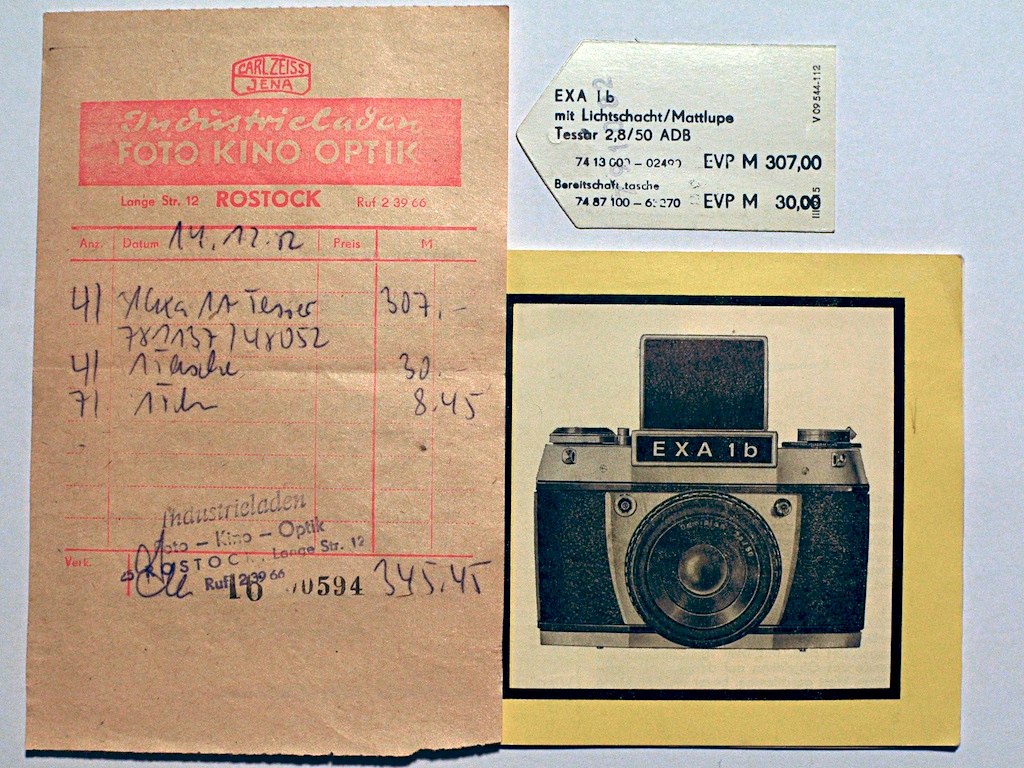 CARL ZEISS
JENA
Industrieladen
FOTO KINO OPTIK
Lange Str. 12 ROSTOCK Ruf 2 39 66
Anz. Datum 14.12.82 Preis M
4) 1 Exa 1b Tessar 307,-
781137/48052
4) 1 Tasche 30.-
7) 8.45
Industrieladen
Foto - Kino - Optik
ROSTOCK, Lange Str. 12
Ruf 2 39 66
Verk.
16 0594 345.45
EXA Ib
mit Lichtschacht/Mattlupe
Tessar 2,8/50 ADB
74 13 000 - 02490 EVP M 307,00
Bereitschaftstasche
74 87 100 - 270 EVP M 30,00
V 09 544-112
EXA 1b